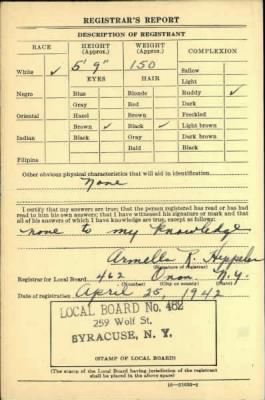 REGISTRAR'S REPORT
DESCRIPTION OF REGISTRANT
RACE HEIGHT (Approx.) WEIGHT (Approx.) COMPLEXION
5' 9" 150 Sallow
White ✓ EYES HAIR Light
Negro Blue Blonde Ruddy ✓
Gray Red Dark
Oriental Hazel Brown Freckled
Brown ✓ Black ✓ Light brown
Indian Black Gray Dark brown
Bald Black
Filipino
Other obvious physical characteristics that will aid in identification
None
I certify that my answers are true; that the person registered has read or has had
read to him his own answers; that I have witnessed his signature or mark and that
all of his answers of which I have knowledge are true, except as follows:
none to my knowledge
Armella R. Heppeler
(Signature of registrar)
Registrar for Local Board 462 Onon. N.Y.
(Number) (City or county) (State)
Date of registration April 25, 1942
LOCAL BOARD No. 462
259 Wolf St.
SYRACUSE, N. Y.
(STAMP OF LOCAL BOARD)
(The stamp of the Local Board having jurisdiction of the registrant
shall be placed in the above space)